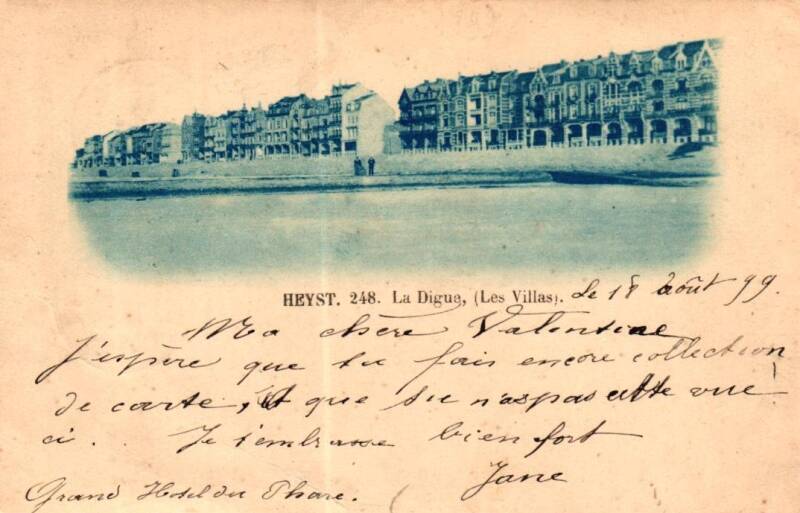 HEYST. 248. La Digue, (Les Villas). Le 18 août 99.
Ma chère Valentine
J'espère que tu fais encore collection
de carte, et que tu n'as pas cette vue
ci. Je t'embrasse bien fort
Jane
Grand Hotel du Phare.